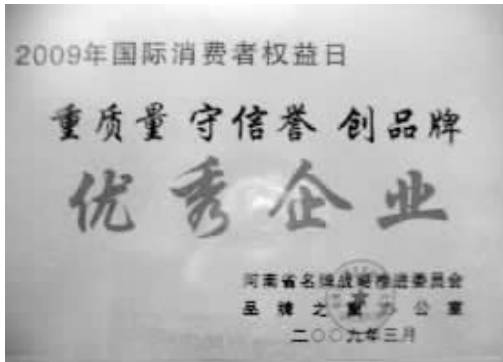 2009年国际消费者权益日
重质量 守信誉 创品牌
优秀企业
河南省名牌战略推进委员会
品牌之 办公室
二〇〇九年三月